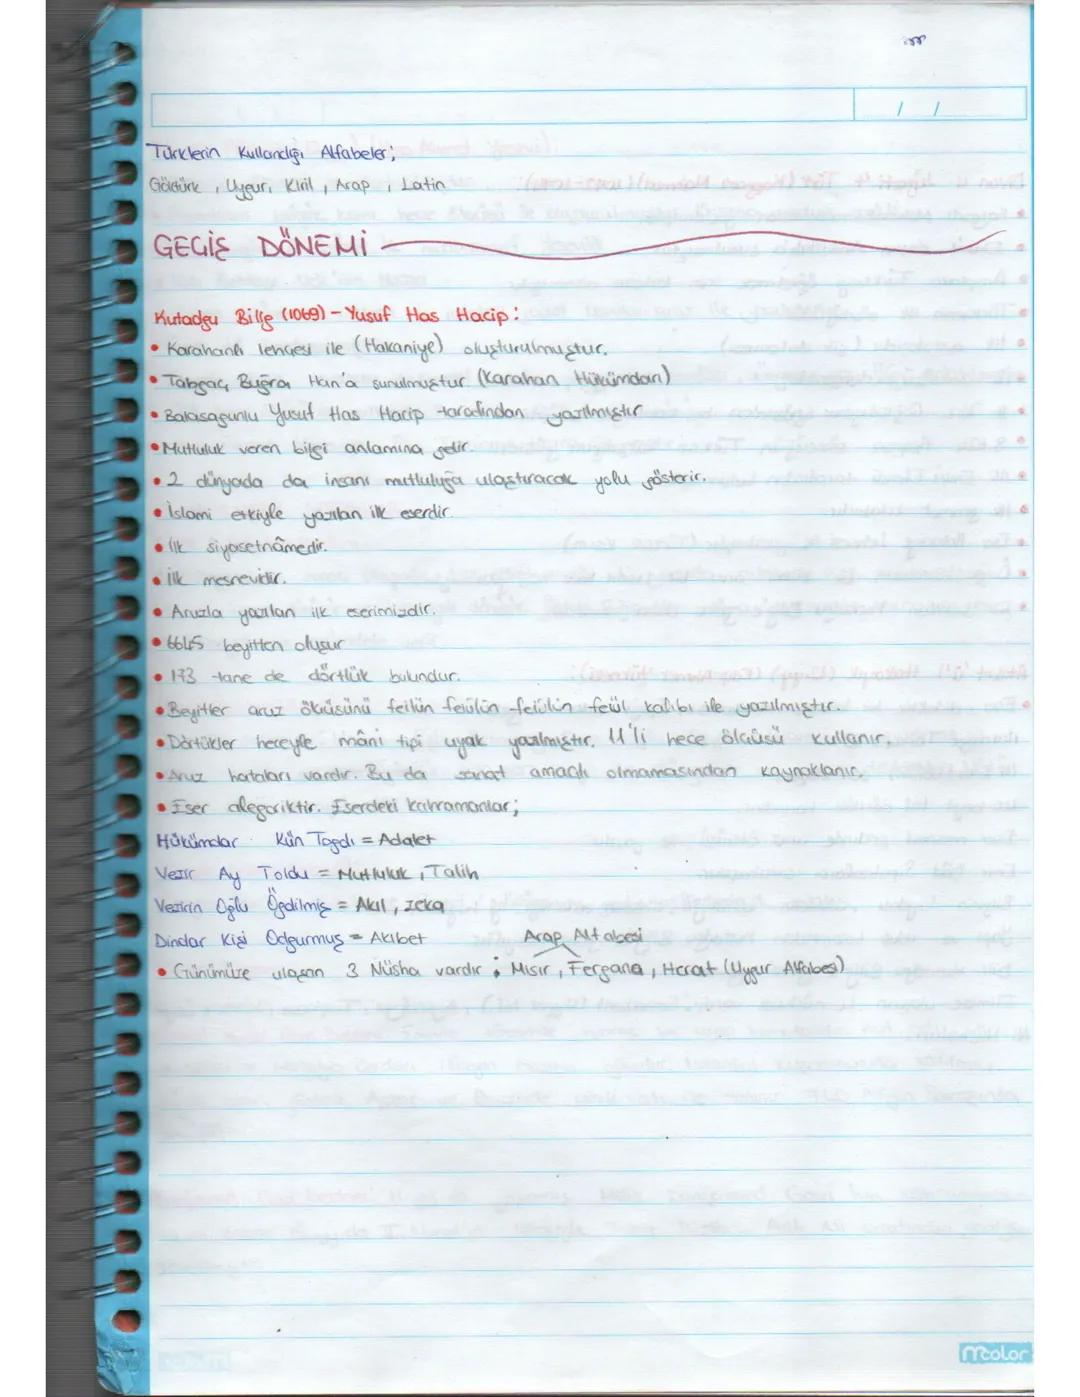 Türklerin Kullandığı Alfabeler;
Göktürk, Uygur, Kiril, Arap, Latin
GEÇİŞ DÖNEMİ
Kutadgu Bilig (1069) - Yusuf Has Hacip:
• Karahanlı lehçesi ile (Hakaniye) oluşturulmuştur.
• Tabgaç Buğra Han'a sunulmuştur (Karahan Hükümdarı)
• Balasagunlu Yusuf Has Hacip tarafından yazılmıştır
• Mutluluk veren bilgi anlamına gelir.
• 2 dünyada da insanı mutluluğa ulaştıracak yolu gösterir.
• İslami etkiyle yazılan ilk eserdir.
• İlk siyasetnâmedir.
• İlk mesnevidir.
• Aruzla yazılan ilk eserimizdir.
• 6645 beyitten oluşur
• 173 tane de dörtlük bulundur.
• Beyitler aruz ölçüsünü feilün feülün feülün feül kalıbı ile yazılmıştır.
• Dörtükler heceyle mâni tipi uyak yazılmıştır. 11'li hece ölçüsü kullanır.
• Aruz hataları vardır. Bu da sanat amaçlı olmamasından kaynaklanır.
• Eser alegoriktir. Eserdeki kahramanlar;
Hükümdar Kün Togdı = Adalet
Vezir Ay Toldu = Mutluluk, Talih
Vezirin Oğlu Ögdilmiş = Akıl, zeka
Dindar Kişi Odgurmuş = Akıbet
Arap Alfabesi
• Günümüze ulaşan 3 Nüsha vardır; Mısır, Fergana, Herat (Uygur Alfabesi)
mcolor